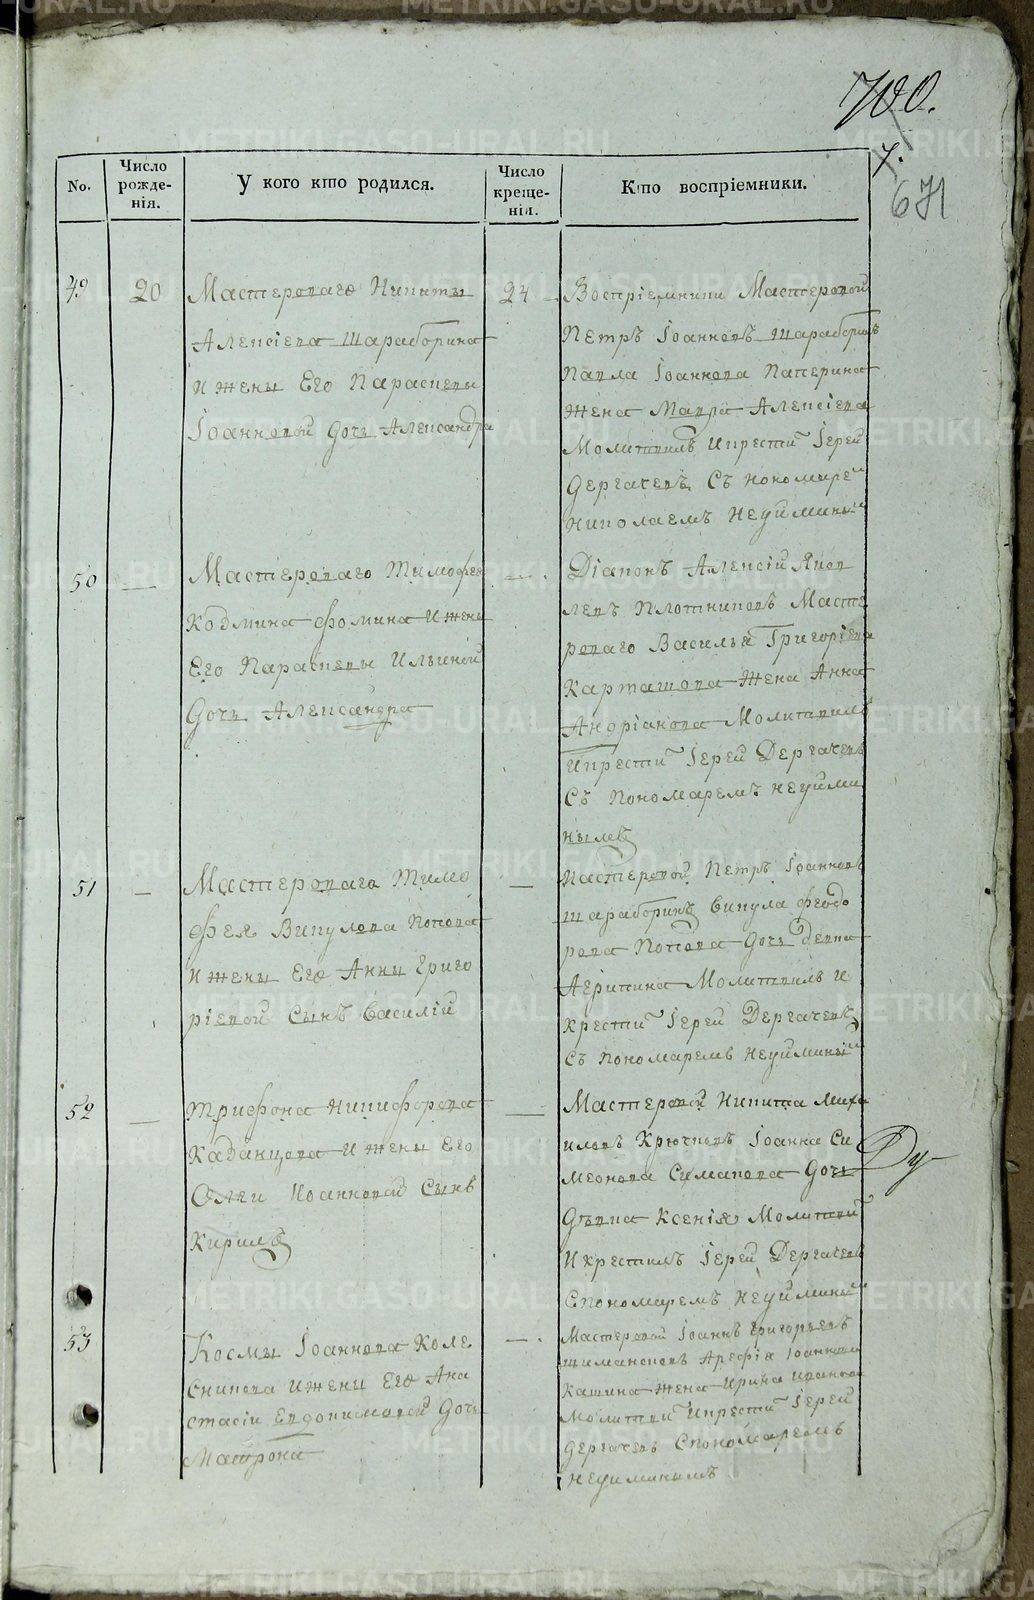 700.
7.
671
No.
Число рожде-нія.
У кого кто родился.
Число креще-нія.
Кто воспріемники.
49
20
Мастероваго Никиты
Алексіева Шараборина
и жены Его Параскевы
Іоанновой Дочь Александра
24
Воспріемники Мастеровой
Петръ Іоанновъ Шараборинъ
Павла Іоаннова
жена Мавра Алексіева
Молитвилъ икрести Іерей
Дергачевъ Съ пономаре
Николаемъ Неуймины
50
—
Мастероваго Тимофея
Козмина Фомина и жены
Его Параскевы Ильиной
Дочь Александра
—
Діаконъ Алексій Яков
левъ Плотниковъ Масте
роваго Василья Григоріева
Карташова жена Анна
Андріанова Молитвилъ
икрести Іерей Дергачевъ
Съ Пономаремъ Неуйми
нымъ
51
—
Мастероваго Тимо
фея Викулова Попова
и жены Его Анны Григо
ріевой Сынъ Василій
—
Мастеровой Петръ Іоанновъ
Шараборинъ Викула Феодо
рова Попова Дочь Девка
Агрипина Молитвилъ и
крести Іерей Дергачевъ
Съ пономаремъ Неуймины
52
—
Трифона Никифорова
Казанцова и жены Его
Іоанновой Сынъ
Кирилъ
—
Мастеровой Никита Миха
иловъ Крючковъ Іоанна Си
меонова Симакова Дочь
Дѣвка Ксенія Молитви
и крестилъ Іерей Дергачевъ
Спономаремъ Неуймины
53
Космы Іоаннова Коле
сникова и жены Его Ана
стасіи Евдокимовой Дочь
Матрона
—
Мастеровой Іоаннъ Григорьевъ
Іоаннова
Кашина жена Ирина Иванова
Молитви икрести Іерей
Дергачевъ Спономаремъ
Неуйминымъ
METRIKI.GASO-URAL.RU